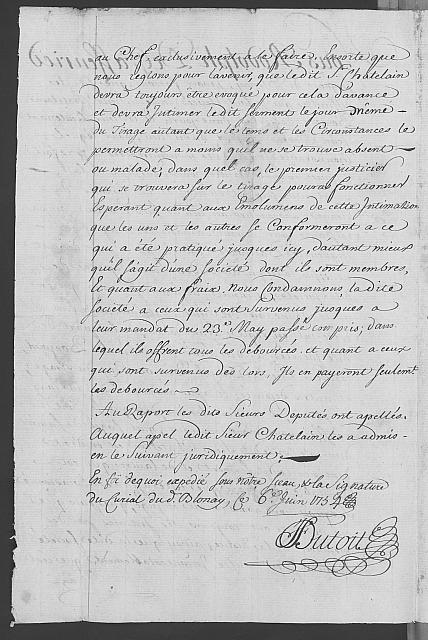 au Chef exclusivement a le faire, Ensorte que
nous reglons pour l'avenir, que ledit Sr. Chatelain
devra toujours être evoqué pour cela d'avance
et devra Intimer ledit serment le jour même
du Tirage autant que le tems et les Circonstances le
permettront a moins qu'il ne se trouve absent
ou malade, dans quel cas, le premier justicier
qui se trouvera sur le tirage pourra fonctionner
Esperant quant aux Emolumens de cette Intimation
que les uns et les autres se Conformeront a ce
qui a été pratiqué jusques icy, d'autant mieux
qu'il s'agit d'une societé dont ils sont membres,
Et quant aux fraix, Nous Condamnons la dite
societé a ceux qui sont survenus jusques a
leur mandat du 23e. May passé compris; dans
lequel ils offrent tous les debourcés. et quant a ceux
qui sont survenus dès lors, Ils en payeront seulemt.
les debourcés.
Au Raport les dits Sieurs Deputés ont apellés.
Auquel apel ledit Sieur Chatelain les a admis
en le suivant juridiquement
En foi dequoi expedié sous nôtre sceau, & la signature
du Curial du d. Blonay, Ce 6e. Juin 1759
Dutoit